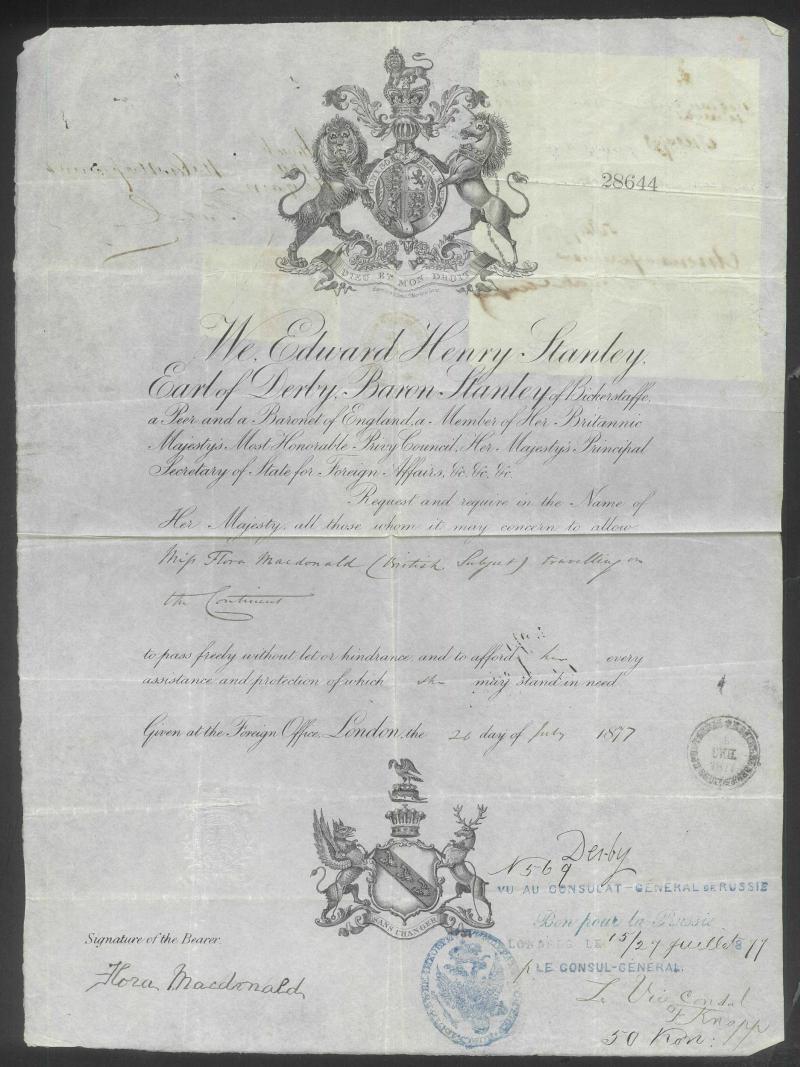 28644
DIEU ET MON DROIT
We, Edward Henry Stanley,
Earl of Derby, Baron Stanley of Bickerstaffe,
a Peer and a Baronet of England, a Member of Her Britannic
Majesty's Most Honorable Privy Council, Her Majesty's Principal
Secretary of State for Foreign Affairs, &c. &c. &c.
Request and require in the Name of
Her Majesty, all those whom it may concern to allow
Miss Flora Macdonald (British Subject) travelling on
the Continent
to pass freely without let or hindrance, and to afford her every
assistance and protection of which she may stand in need
Given at the Foreign Office, London, the 26 day of July 1877
Derby
N 569
VU AU CONSULAT-GÉNÉRAL DE RUSSIE
Bon pour la Russie
LONDRES LE 15/27 juillet 1877
p LE CONSUL-GÉNÉRAL.
Le Vice Consul
F Knopp
50 Kop:
SANS CHANGER
Signature of the Bearer.
Flora Macdonald